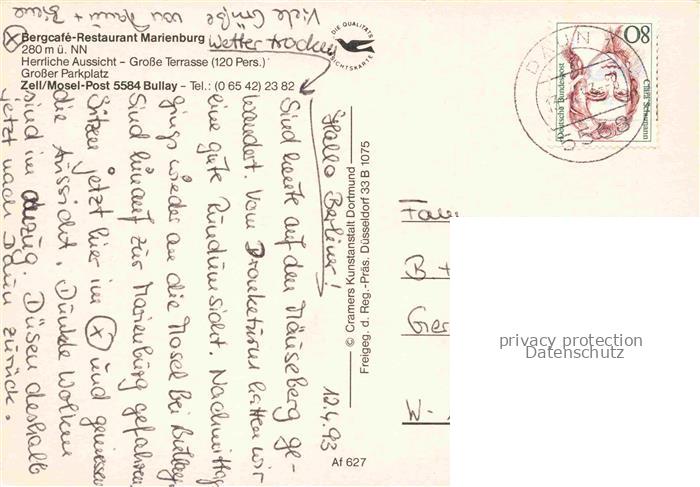 Viele Grüße von
Bergcafé-Restaurant Marienburg
280 m ü. NN
Herrliche Aussicht – Große Terrasse (120 Pers.)
Großer Parkplatz
Zell/Mosel-Post 5584 Bullay – Tel.: (0 65 42) 23 82
Wetter trocken
DIE QUALITÄTS
ANSICHTSKARTE
12.4.93
Hallo Berliner!
Sind heute auf den Mäuseberg ge-
wandert. Vom Dronketurm hatten wir
eine gute Rundumsicht. Nachmittag
gings wieder an die Mosel bei Bullay.
Sind hinauf zur Marienburg gefahren.
Sitzen jetzt hier im (X) und geniessen
die Aussicht. Dunkle Wolken
sind im Anzug. Düsen deshalb
jetzt nach Daun zurück.
© Cramers Kunstanstalt Dortmund
Freigeg. d. Reg.-Präs. Düsseldorf 33 B 1075
Af 627
DAUN
5568
80
Clara Schumann
Deutsche Bundespost
B +
W-
privacy protection
Datenschutz